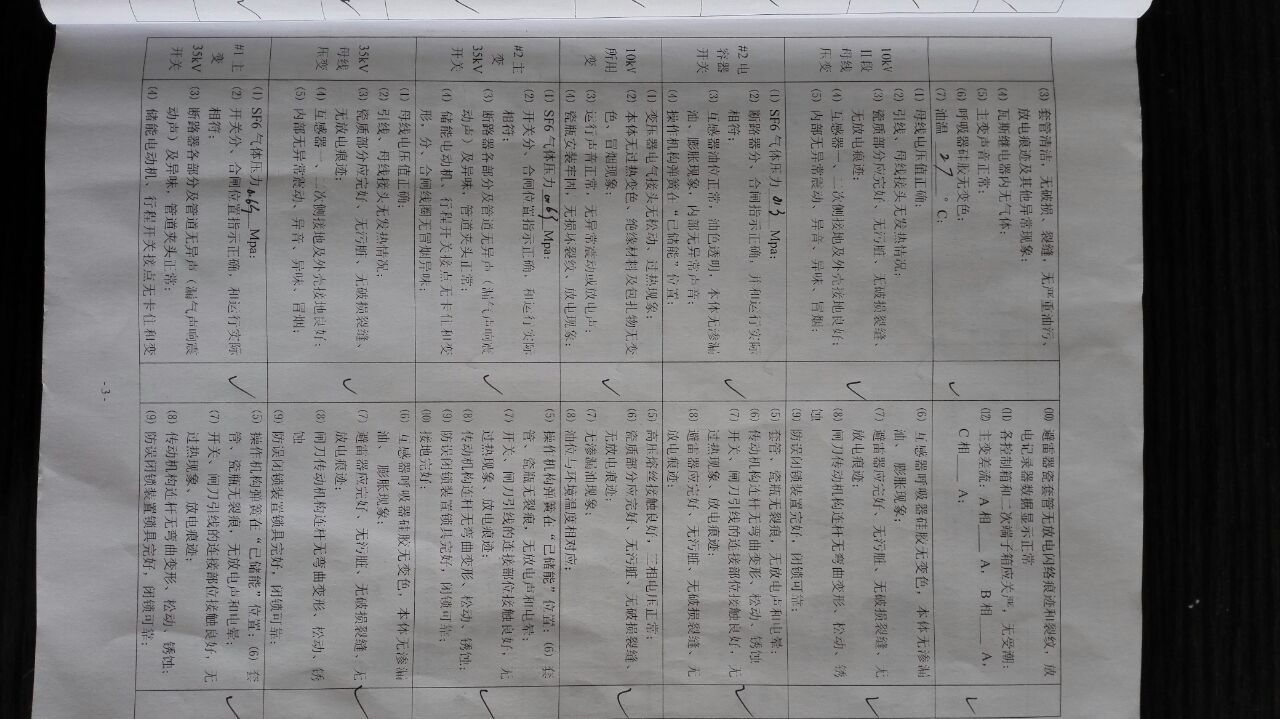 (3) 套管清洁，无破损、裂缝，无严重油污、
放电痕迹及其他异常现象；
(4) 瓦斯继电器内无气体；
(5) 主变声音正常；
(6) 呼吸器硅胶无变色；
(7) 油温 27 °C；
✓
(10) 避雷器瓷套管无放电闪络痕迹和裂纹，放
电记录器数据显示正常
(11) 各控制箱和二次端子箱应关严，无受潮；
(12) 主变差流：A 相 A，B 相 A，
C 相 A；
✓
10kV
II段
母线
压变
(1) 母线电压值正确；
(2) 引线、母线接头无发热情况；
(3) 瓷质部分应完好、无污脏、无破损裂缝、
无放电痕迹；
(4) 互感器一、二次侧接地及外壳接地良好；
(5) 内部无异常震动、异音、异味、冒烟；
✓
(6) 互感器呼吸器硅胶无变色，本体无渗漏
油、膨胀现象；
(7) 避雷器应完好、无污脏、无破损裂缝、无
放电痕迹；
(8) 闸刀传动机构连杆无弯曲变形、松动、锈
蚀
(9) 防误闭锁装置完好，闭锁可靠；
✓
#2 电
容器
开关
(1) SF6 气体压力 Mpa；
(2) 断路器分、合闸指示正确，并和运行实际
相符；
(3) 互感器油位正常，油色透明，本体无渗漏
油、膨胀现象，内部无异常声音；
(4) 操作机构弹簧在“已储能”位置；
✓
(5) 套管、瓷瓶无裂痕，无放电声和电晕；
(6) 传动机构连杆无弯曲变形、松动、锈蚀
(7) 开关、闸刀引线的连接部位接触良好，无
过热现象、放电痕迹；
(8) 避雷器应完好、无污脏、无破损裂缝、无
放电痕迹；
✓
10kV
所用
变
(1) 变压器电气接头无松动、过热现象；
(2) 本体无过热变色，绝缘材料及包扎物无变
色、冒烟现象；
(3) 运行声音正常，无异常震动或放电声；
(4) 瓷瓶安装牢固，无损坏裂纹、放电现象；
✓
(5) 高压熔丝接触良好，三相电压正常；
(6) 瓷质部分应完好、无污脏、无破损裂缝、
无放电痕迹；
(7) 无渗漏油现象；
(8) 油位与环境温度相对应；
✓
#2 主
变
35kV
开关
(1) SF6 气体压力 0.64 Mpa；
(2) 开关分、合闸位置指示正确，和运行实际
相符；
(3) 断路器各部分及管道无异声（漏气声响震
动声）及异味，管道夹头正常；
(4) 储能电动机、行程开关接点无卡住和变
形，分、合闸线圈无冒烟异味；
✓
(5) 操作机构弹簧在“已储能”位置；(6) 套
管、瓷瓶无裂痕，无放电声和电晕；
(7) 开关、闸刀引线的连接部位接触良好，无
过热现象、放电痕迹；
(8) 传动机构连杆无弯曲变形、松动、锈蚀；
(9) 防误闭锁装置锁具完好，闭锁可靠；
(10) 接地完好；
✓
35kV
母线
压变
(1) 母线电压值正确；
(2) 引线、母线接头无发热情况；
(3) 瓷质部分应完好、无污脏、无破损裂缝、
无放电痕迹；
(4) 互感器一、二次侧接地及外壳接地良好；
(5) 内部无异常震动、异音、异味、冒烟；
✓
(6) 互感器呼吸器硅胶无变色，本体无渗漏
油、膨胀现象；
(7) 避雷器应完好、无污脏、无破损裂缝、无
放电痕迹；
(8) 闸刀传动机构连杆无弯曲变形、松动、锈
蚀
(9) 防误闭锁装置锁具完好，闭锁可靠；
✓
#1 主
变
35kV
开关
(1) SF6 气体压力 0.64 Mpa；
(2) 开关分、合闸位置指示正确，和运行实际
相符；
(3) 断路器各部分及管道无异声（漏气声响震
动声）及异味，管道夹头正常；
(4) 储能电动机、行程开关接点无卡住和变
✓
(5) 操作机构弹簧在“已储能”位置；(6) 套
管、瓷瓶无裂痕，无放电声和电晕；
(7) 开关、闸刀引线的连接部位接触良好，无
过热现象、放电痕迹；
(8) 传动机构连杆无弯曲变形、松动、锈蚀；
(9) 防误闭锁装置锁具完好，闭锁可靠；
✓
- 3 -